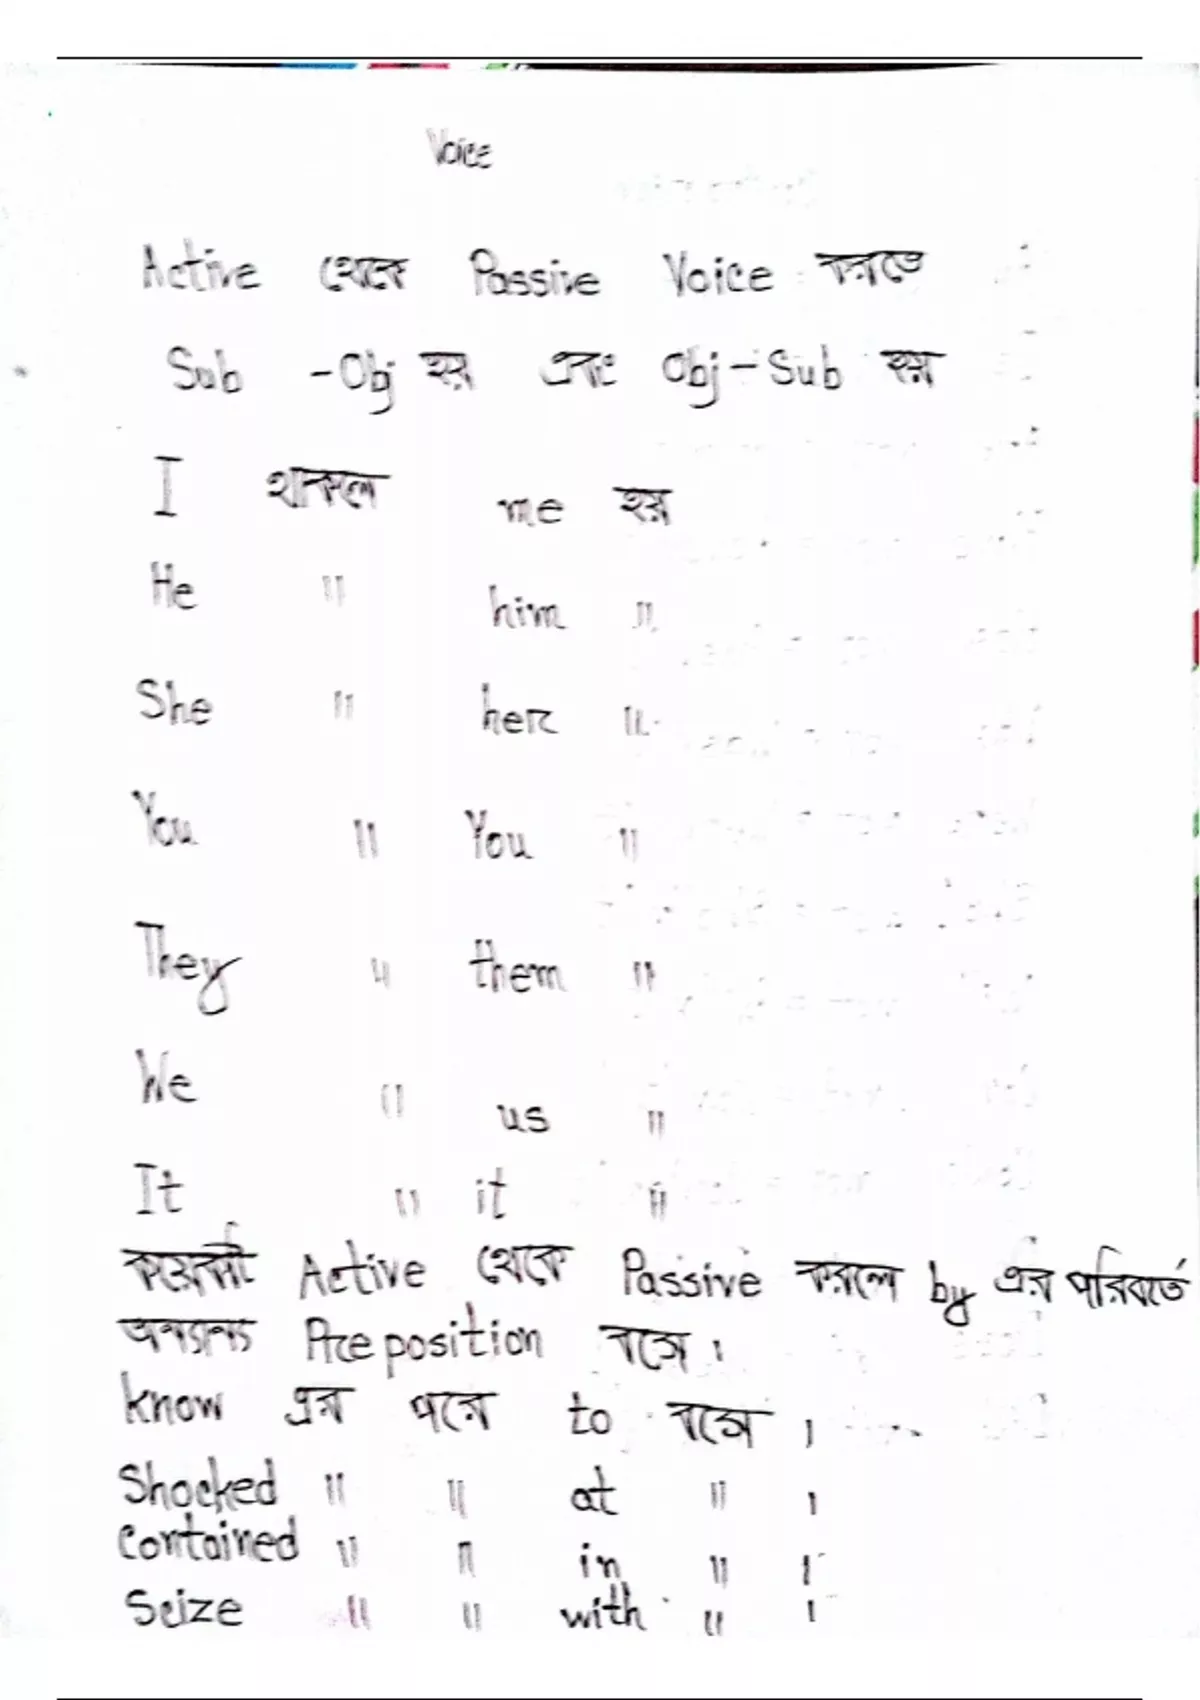 Voice
Active থেকে Passive Voice করতে
Sub - Obj হয় এবং Obj - Sub হয়
I থাকলে me হয়
He " him "
She " her "
You " You "
They " them "
We " us "
It " it "
কয়েকটা Active থেকে Passive করলে by এর পরিবর্তে
অন্যান্য Preposition বসে।
know এর পরে to বসে।
Shocked " " at " ।
Contained " " in " ।
Seize " " with " ।